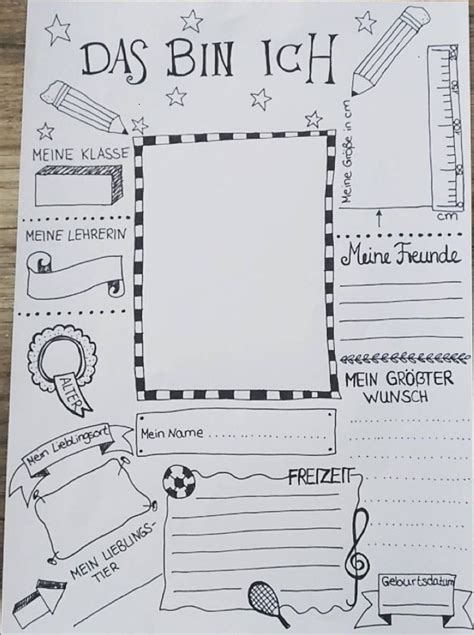 DAS BIN ICH
MEINE KLASSE
MEINE LEHRERIN
ALTER
Mein Lieblingsort
MEIN LIEBLINGS-
TIER
Mein Name
FREIZEIT
Meine Größe in cm
50
100
150
200
cm
Meine Freunde
MEIN GRÖßTER
WUNSCH
Geburtsdatum